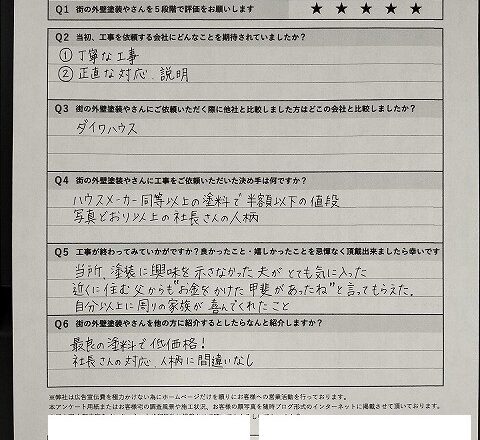 Q1 街の外壁塗装やさんを5段階で評価をお願いします ★ ★ ★ ★ ★
Q2 当初、工事を依頼する会社にどんなことを期待されていましたか？
① 丁寧な工事
② 正直な対応 説明
Q3 街の外壁塗装やさんにご依頼いただく際に他社と比較しました方はどこの会社と比較しましたか？
ダイワハウス
Q4 街の外壁塗装やさんに工事をご依頼いただいた決め手は何ですか？
ハウスメーカー同等以上の塗料で半額以下の値段
写真どおり以上の社長さんの人柄
Q5 工事が終わってみていかがですか？良かったこと・嬉しかったことを忌憚なく頂戴出来ましたら幸いです
当所、塗装に興味を示さなかった夫がとても気に入った
近くに住む父からも"お金をかけた甲斐があったね"と言ってもらえた。
自分以上に周りの家族が喜んでくれたこと
Q6 街の外壁塗装やさんを他の方に紹介するとしたらなんと紹介しますか？
最良の塗料で低価格！
社長さんの対応、人柄に間違いなし
※弊社は広告宣伝費を極力かけない為にホームページだけを頼りにお客様への営業活動を行っております。
本アンケート用紙またはお客様宅の調査風景や施工状況、お客様の顔写真を随時ブログ形式のインターネットに掲載させて頂いております。